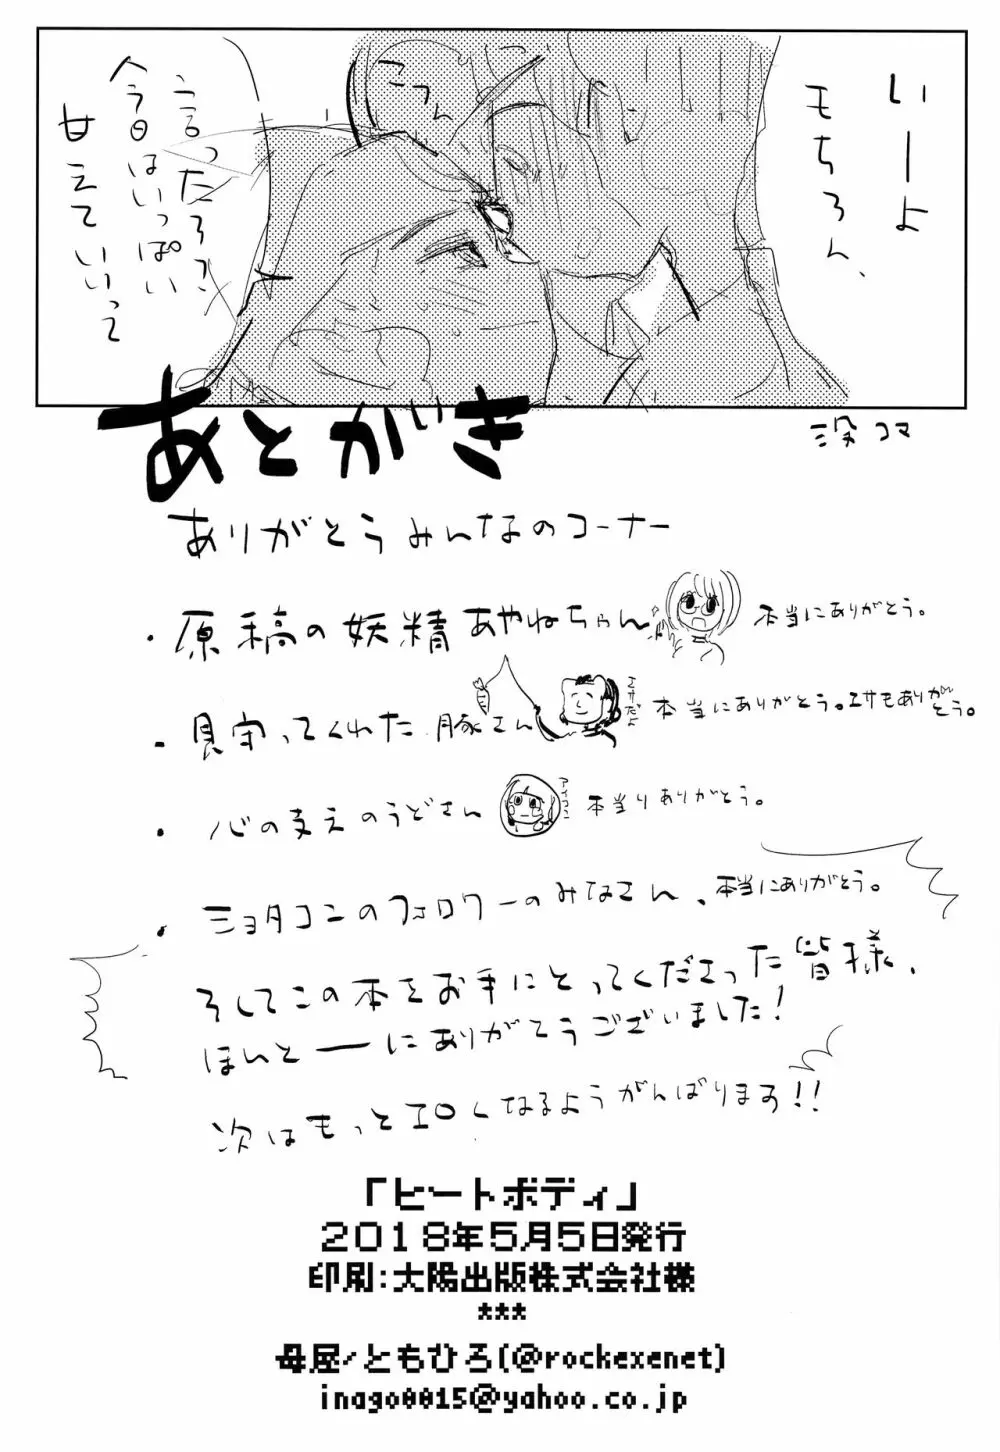 いーよ
もちろん、
こつん
言ったろ?
今日はいっぱい
甘えていいって
没コマ
あとがき
ありがとうみんなのコーナー
・原稿の妖精あやねちゃん 本当にありがとう。
・見守ってくれた豚さん エサだよ 本当にありがとう。エサもありがとう。
・心の支えのうどさん アイコン 本当にありがとう。
・ショタコンのフォロワーのみなさん、本当にありがとう。
そしてこの本をお手にとってくださった皆様、
ほんとーにありがとうございました!
次はもっとエロくなるようがんばります!!
「ヒートボディ」
2018年5月5日発行
印刷:大陽出版株式会社様
***
母屋/ともひろ(@rockexenet)
inago0015@yahoo.co.jp